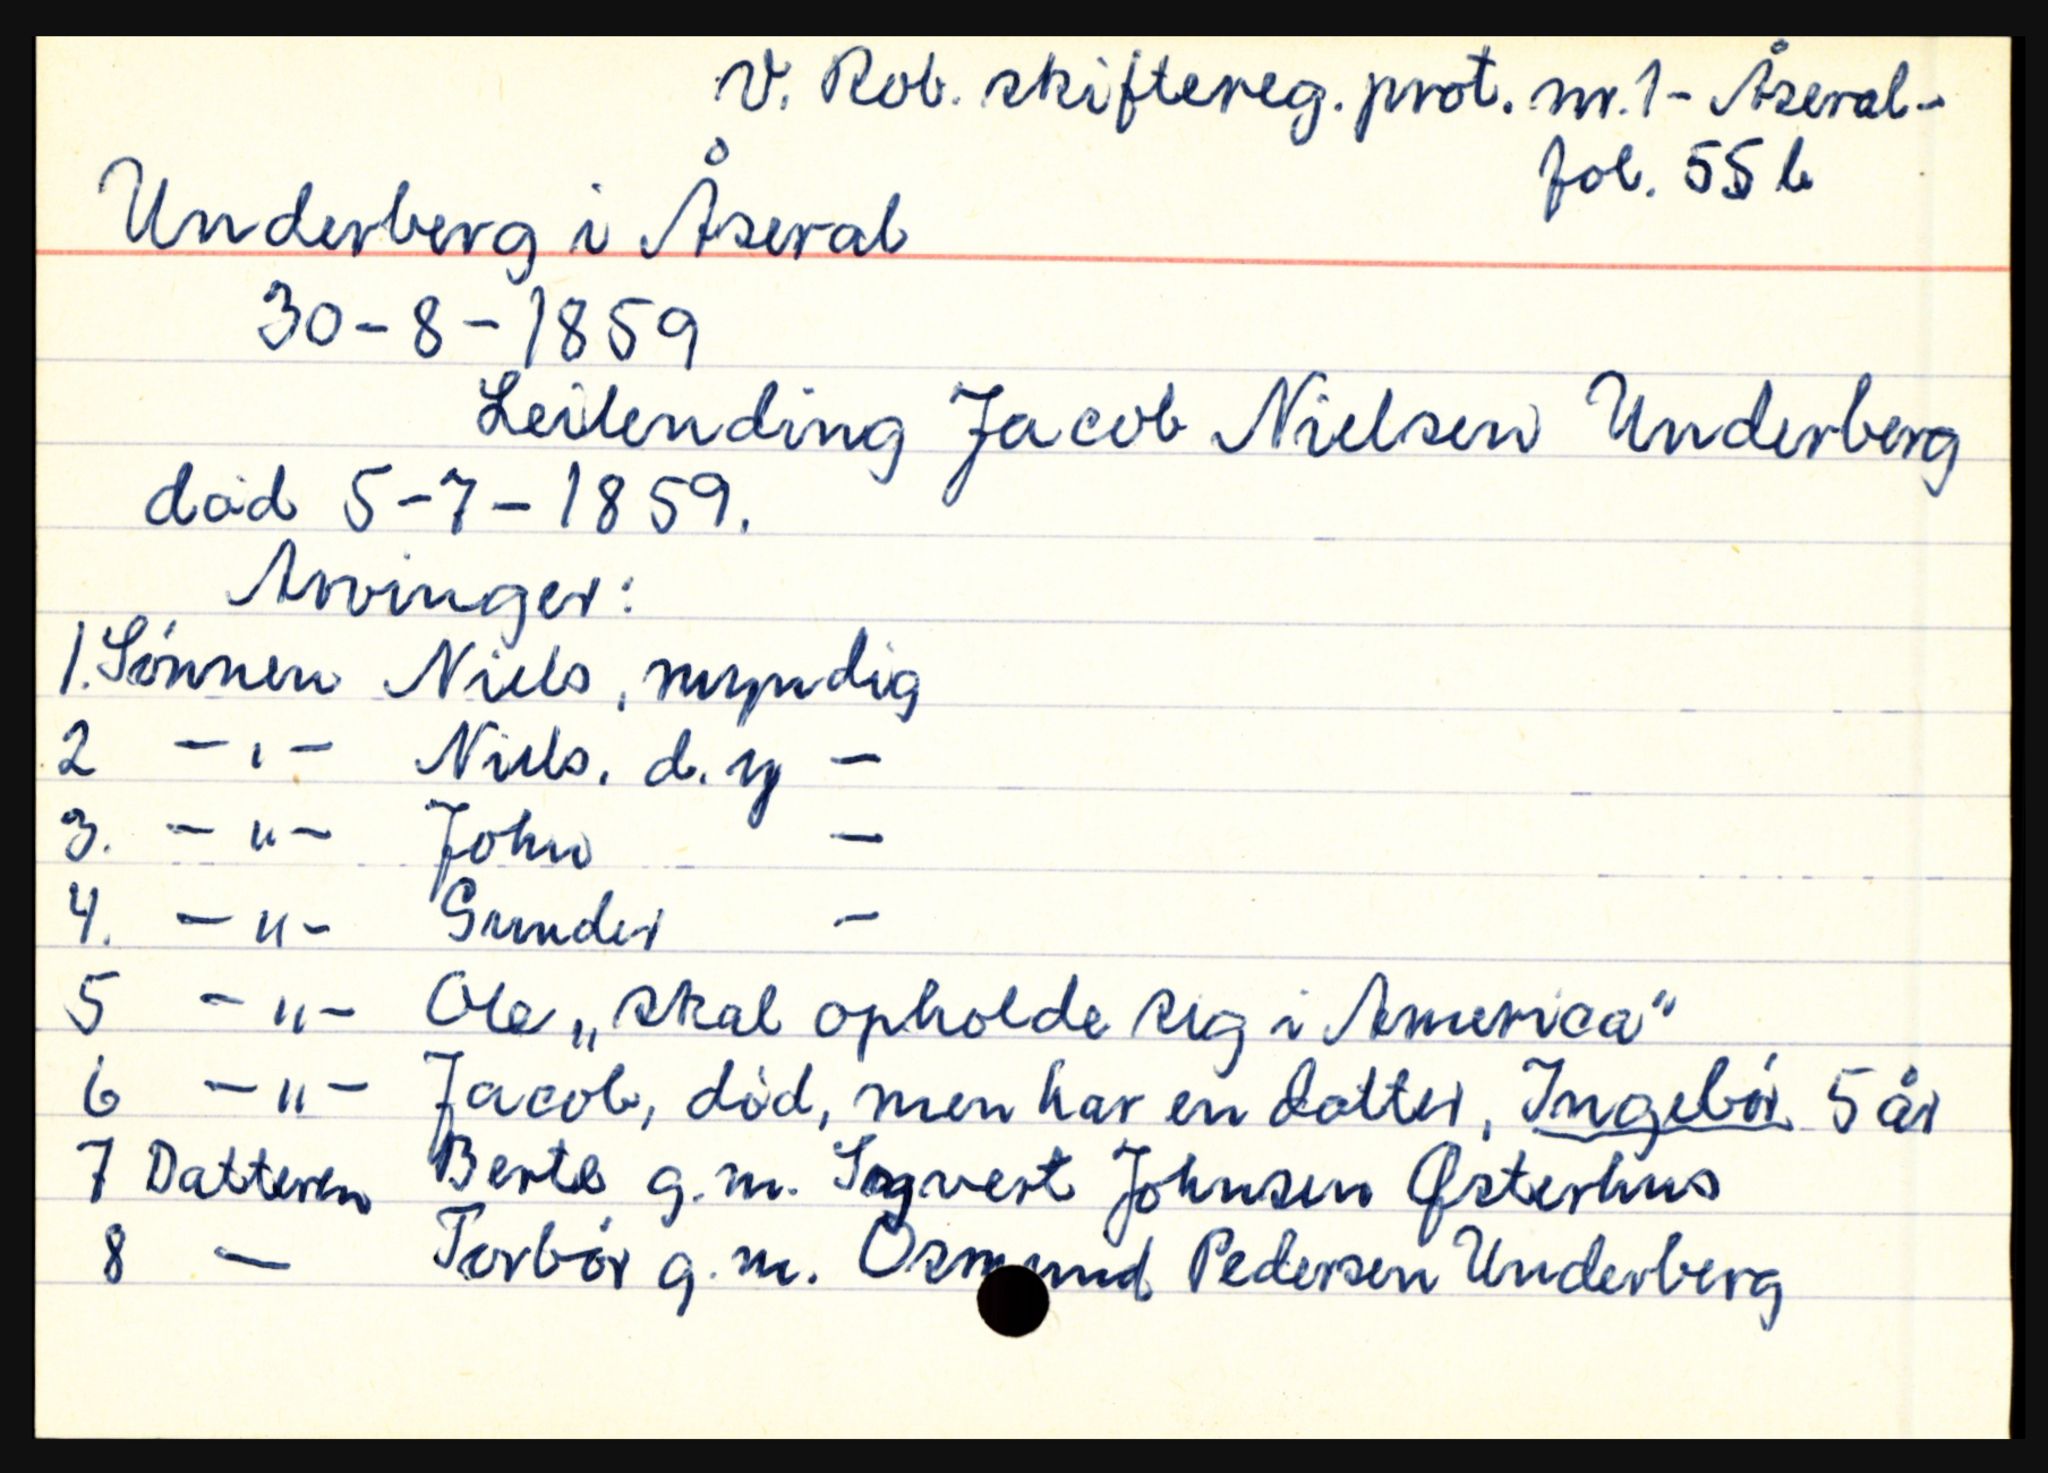 V. Rob. skiftereg. prot. nr. 1 - Åseral -
fol. 55 b
Underberg i Åseral
30-8-1859
Leilending Jacob Nielsen Underberg
død 5-7-1859.
Arvinger:
1. Sønnen Niels, myndig
2 -"- Niels. d. y -
3. -"- John -
4. -"- Gunder -
5 -"- Ole „skal opholde sig i America“
6 -"- Jacob, død, men har en datter, Ingebór 5 år
7 Datteren Berte g.m. Syvert Johnsen Østerhus
8 - Torbór g.m. Osmund Pedersen Underberg